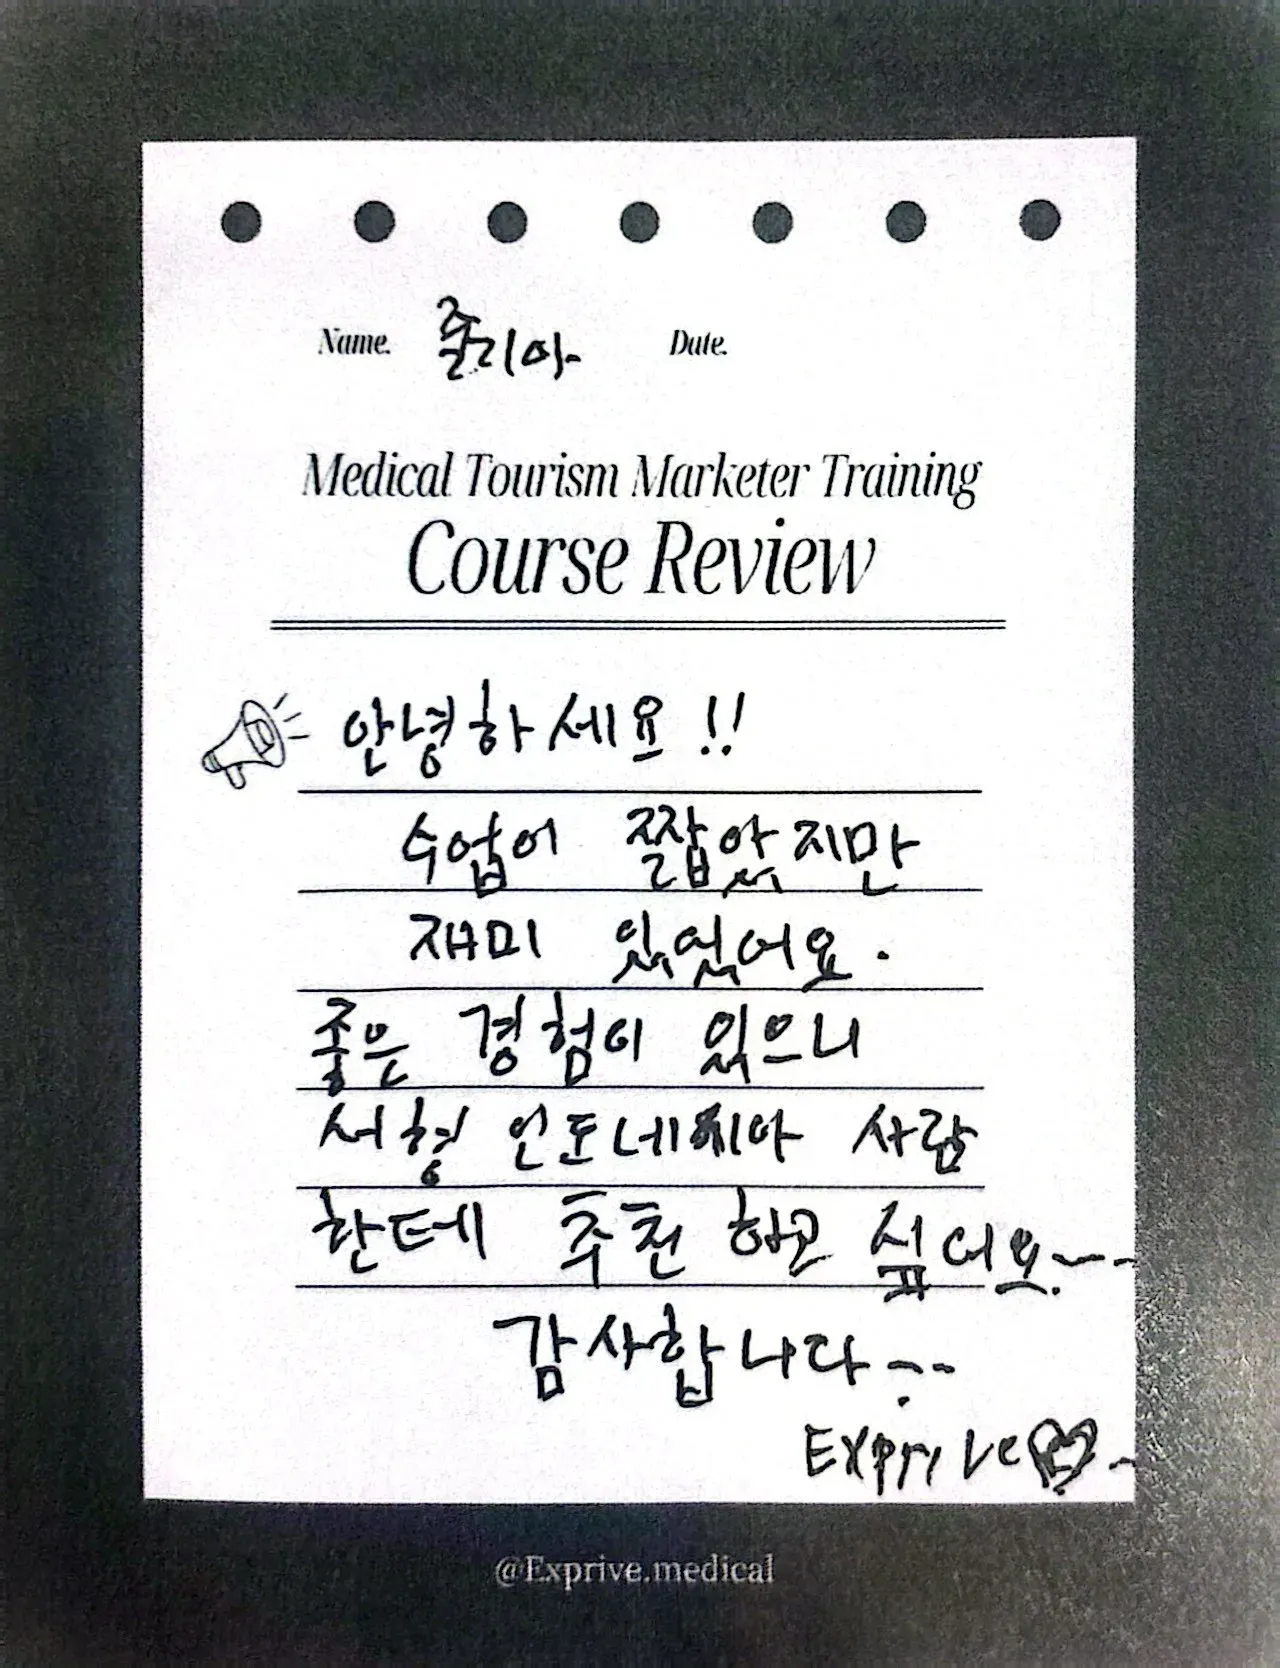 Name. 줄리아 Date.
Medical Tourism Marketer Training
Course Review
안녕하세요!!
수업어 짧았지만
재미 있었어요.
좋은 경험이 있으니
서형 인도네시아 사람
한테 추천 하고 싶어요~~
감사합니다~~
Exprive
@Exprive.medical